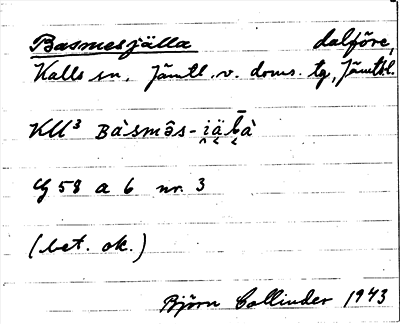 Basmesjälla dalföre,
Kalls sn. Jämtl. v. doms. tg, Jämtl.
KU³ Bàsmə̂s-i̯ä̬l̬̄à
G 58 a b nr. 3
(bet. ok.)
Björn Collinder 1943